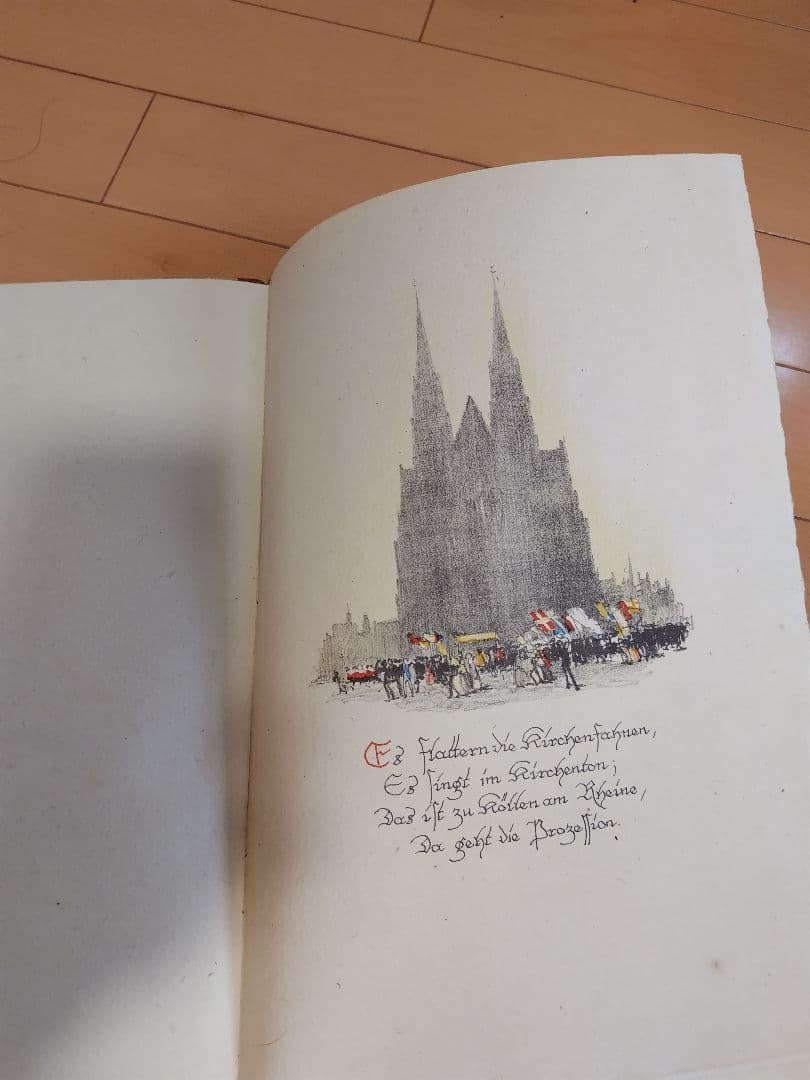 Es flattern die Kirchenfahnen,
Es singt im Kirchenton;
Das ist zu Köllen am Rheine,
Da geht die Prozession.